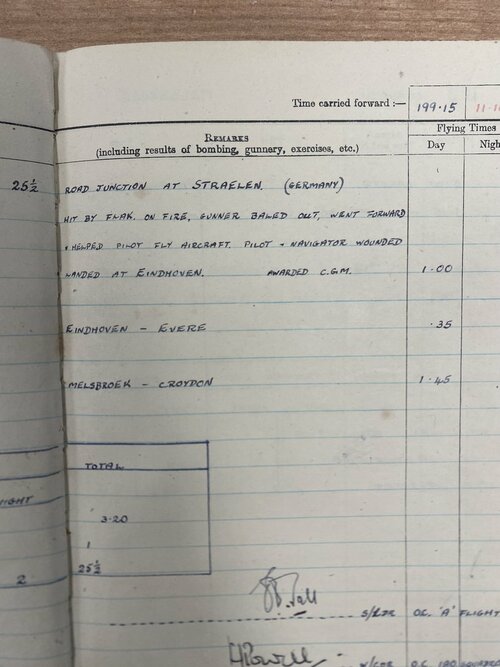 Time carried forward :— 199·15
Flying Times
REMARKS
(including results of bombing, gunnery, exercises, etc.)
Day
25½ ROAD JUNCTION AT STRAELEN. (GERMANY)
HIT BY FLAK. ON FIRE, GUNNER BALED OUT, WENT FORWARD
+ HELPED PILOT FLY AIRCRAFT. PILOT + NAVIGATOR WOUNDED
LANDED AT EINDHOVEN. AWARDED C.G.M. 1·00
EINDHOVEN - EVERE ·35
MELSBROEK - CROYDON 1·45
TOTAL
3-20
1
25½
2
S/LDR OC. 'A' FLIGHT
O.C. 180